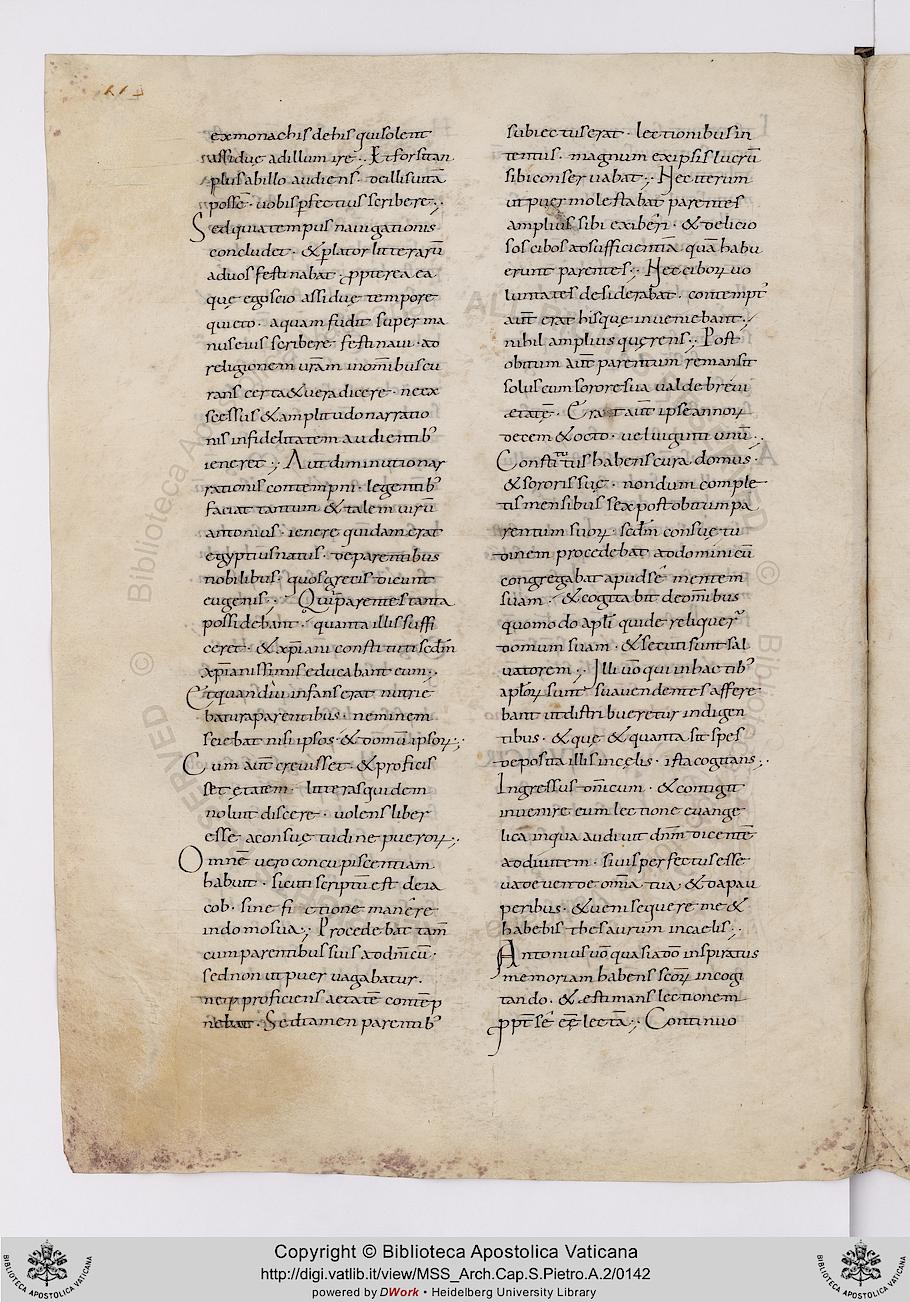 ex monachis de his qui solent
assidue ad illum ire ·, Et forsitan
plus ab illo audiens · et illis uitā
posse · uobis ꝑfectius scribere ·,
Sed quia tempus nauigationis
concludet · & plator litterarū
ad uos festinabat · ꝓpterea ea
quę ego scio assidue tempore
quieto · aquam fudit super ma
nus eius scribere festinaui · ad
religionem urām in omibus cu
rans certa & uera dicere · ne ex
scessus & amplitudo narratio
nis infidelitatem audientib;
ieneret ·, Aut diminutio nar
rationis contempni · legentib;
faciat tantum & talem uirū
antonius · ienere quidam erat
egyptus natus · de parentibus
nobilibus · quos grecis dicunt
eugenis ·, Qui parentes tanta
possidebant · quanta illis suffi
ceret · & xpiani constituti sedm
xpianissimis educabant eum ·,
Et quandiu infans erat nutrie
batur a parentibus · neminem
sciebat nisi ipsos · & domū ipsoꝝ ·,
Cum aut creuisset · & proficis
set etatem · litteras quidem
noluit discere · uolens liber
esse a consuetudine pueroꝝ ·,
Omnē uero concupiscentiam
habuit · sicuti scriptū est de ia
cob · sine fictione manere
in domo sua ·, Procedebat tam
cum parentibus suis ad dnicū ·
sed non ut puer uagabatur ·
neqꝫ proficiens aetatē contēp
nebat · Sed tamen parentib;
subiectus erat · lectionibus in
tentus · magnum ex ipsis lucrū
sibi conseruabat ·, Nec iterum
ut puer molestabat parentes
amplius sibi exiberi · & delicio
sos cibos ad sufficientiā quā habu
erunt parentes ·, Nec ciboꝝ uo
luntates desiderabat · contempt'
aut erat hisque inueniebant ·,
nihil amplius quęrens ·, Post
obitum aut parentum remansit
solus cum sorore sua ualde breui
etatē · Erat aut ipse annoꝝ
decem & octo · uel uiginti unū ·,
Constitutus habens cura domus ·
& sororis suę · nondum comple
tis mensibus sex post obitum pa
rentum suoꝝ · sedm consuetu
dinem procedebat ad dominicū
congregabat apud se mentem
suam · & cogitabit de omibus
quomodo apli quide reliquer
domum suam · & secuti sunt sal
uatorem ·, Illi uo qui in hac tib'
aploꝝ sunt sua uendentes affere
bant ut distribueretur indigen
tibus · & quę & quanta sit spes
deposita illis in cęlis · ista cogitans ·,
Ingressus dnicum · & contigit
inuenire eum lectione euange
lica in qua audiuit dnm dicentē
ad diuitem · si uis perfectus esse
uade uende omia tua · & da pau
peribus · & ueni sequere me &
habebis thesaurum in caelis ·,
Antonius uo quasi a do inspiratus
memoriam habens scoꝝ in cogi
tando · & estimans lectionem
ꝓpt se eē lectā ·, Continuo
Copyright © Biblioteca Apostolica Vaticana
http://digi.vatlib.it/view/MSS_Arch.Cap.S.Pietro.A.2/0142
powered by DWork • Heidelberg University Library